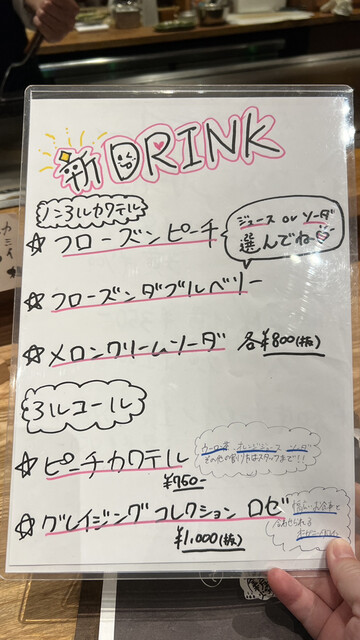 新 DRINK
ノンアルカクテル
☆フローズンピーチ
ジュース or ソーダ
選んでねー
☆フローズンダブルベリー
☆メロンクリームソーダ 各¥800(抜)
アルコール
☆ピーチカクテル
ウーロン茶 オレンジジュース ソーダ
その他の割り方はスタッフまで!!
¥750-
☆グレイジングコレクション ロゼ
¥1,000(抜)